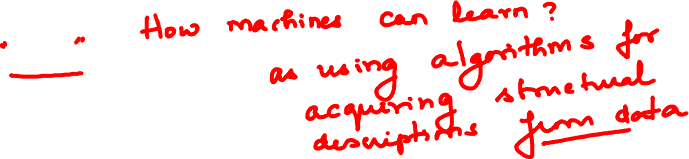 " " How machines can learn?
as using algorithms for
acquiring structual
descriptions from data